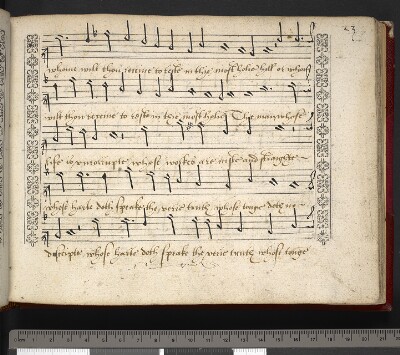 23
whome wilt thou receive to reste in thie most holie hill or whome
wilt thou receive to reste in thie most holie The man whose
life is uncorrupte whose workes are juste and straighte
whose harte doth speake the verie truth whose tonge doth no
desceipte whose harte doth speake the verie truth whose tonge